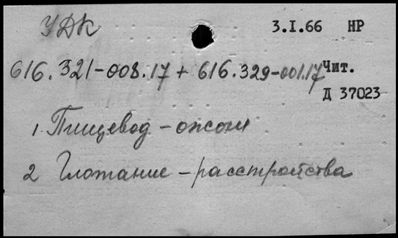 УДК
3.I.66 НР
616.321-008.17 + 616.329-001.17 Чит.
Д 37023
1 Пищевод – ожоги
2 Глотание – расстройства